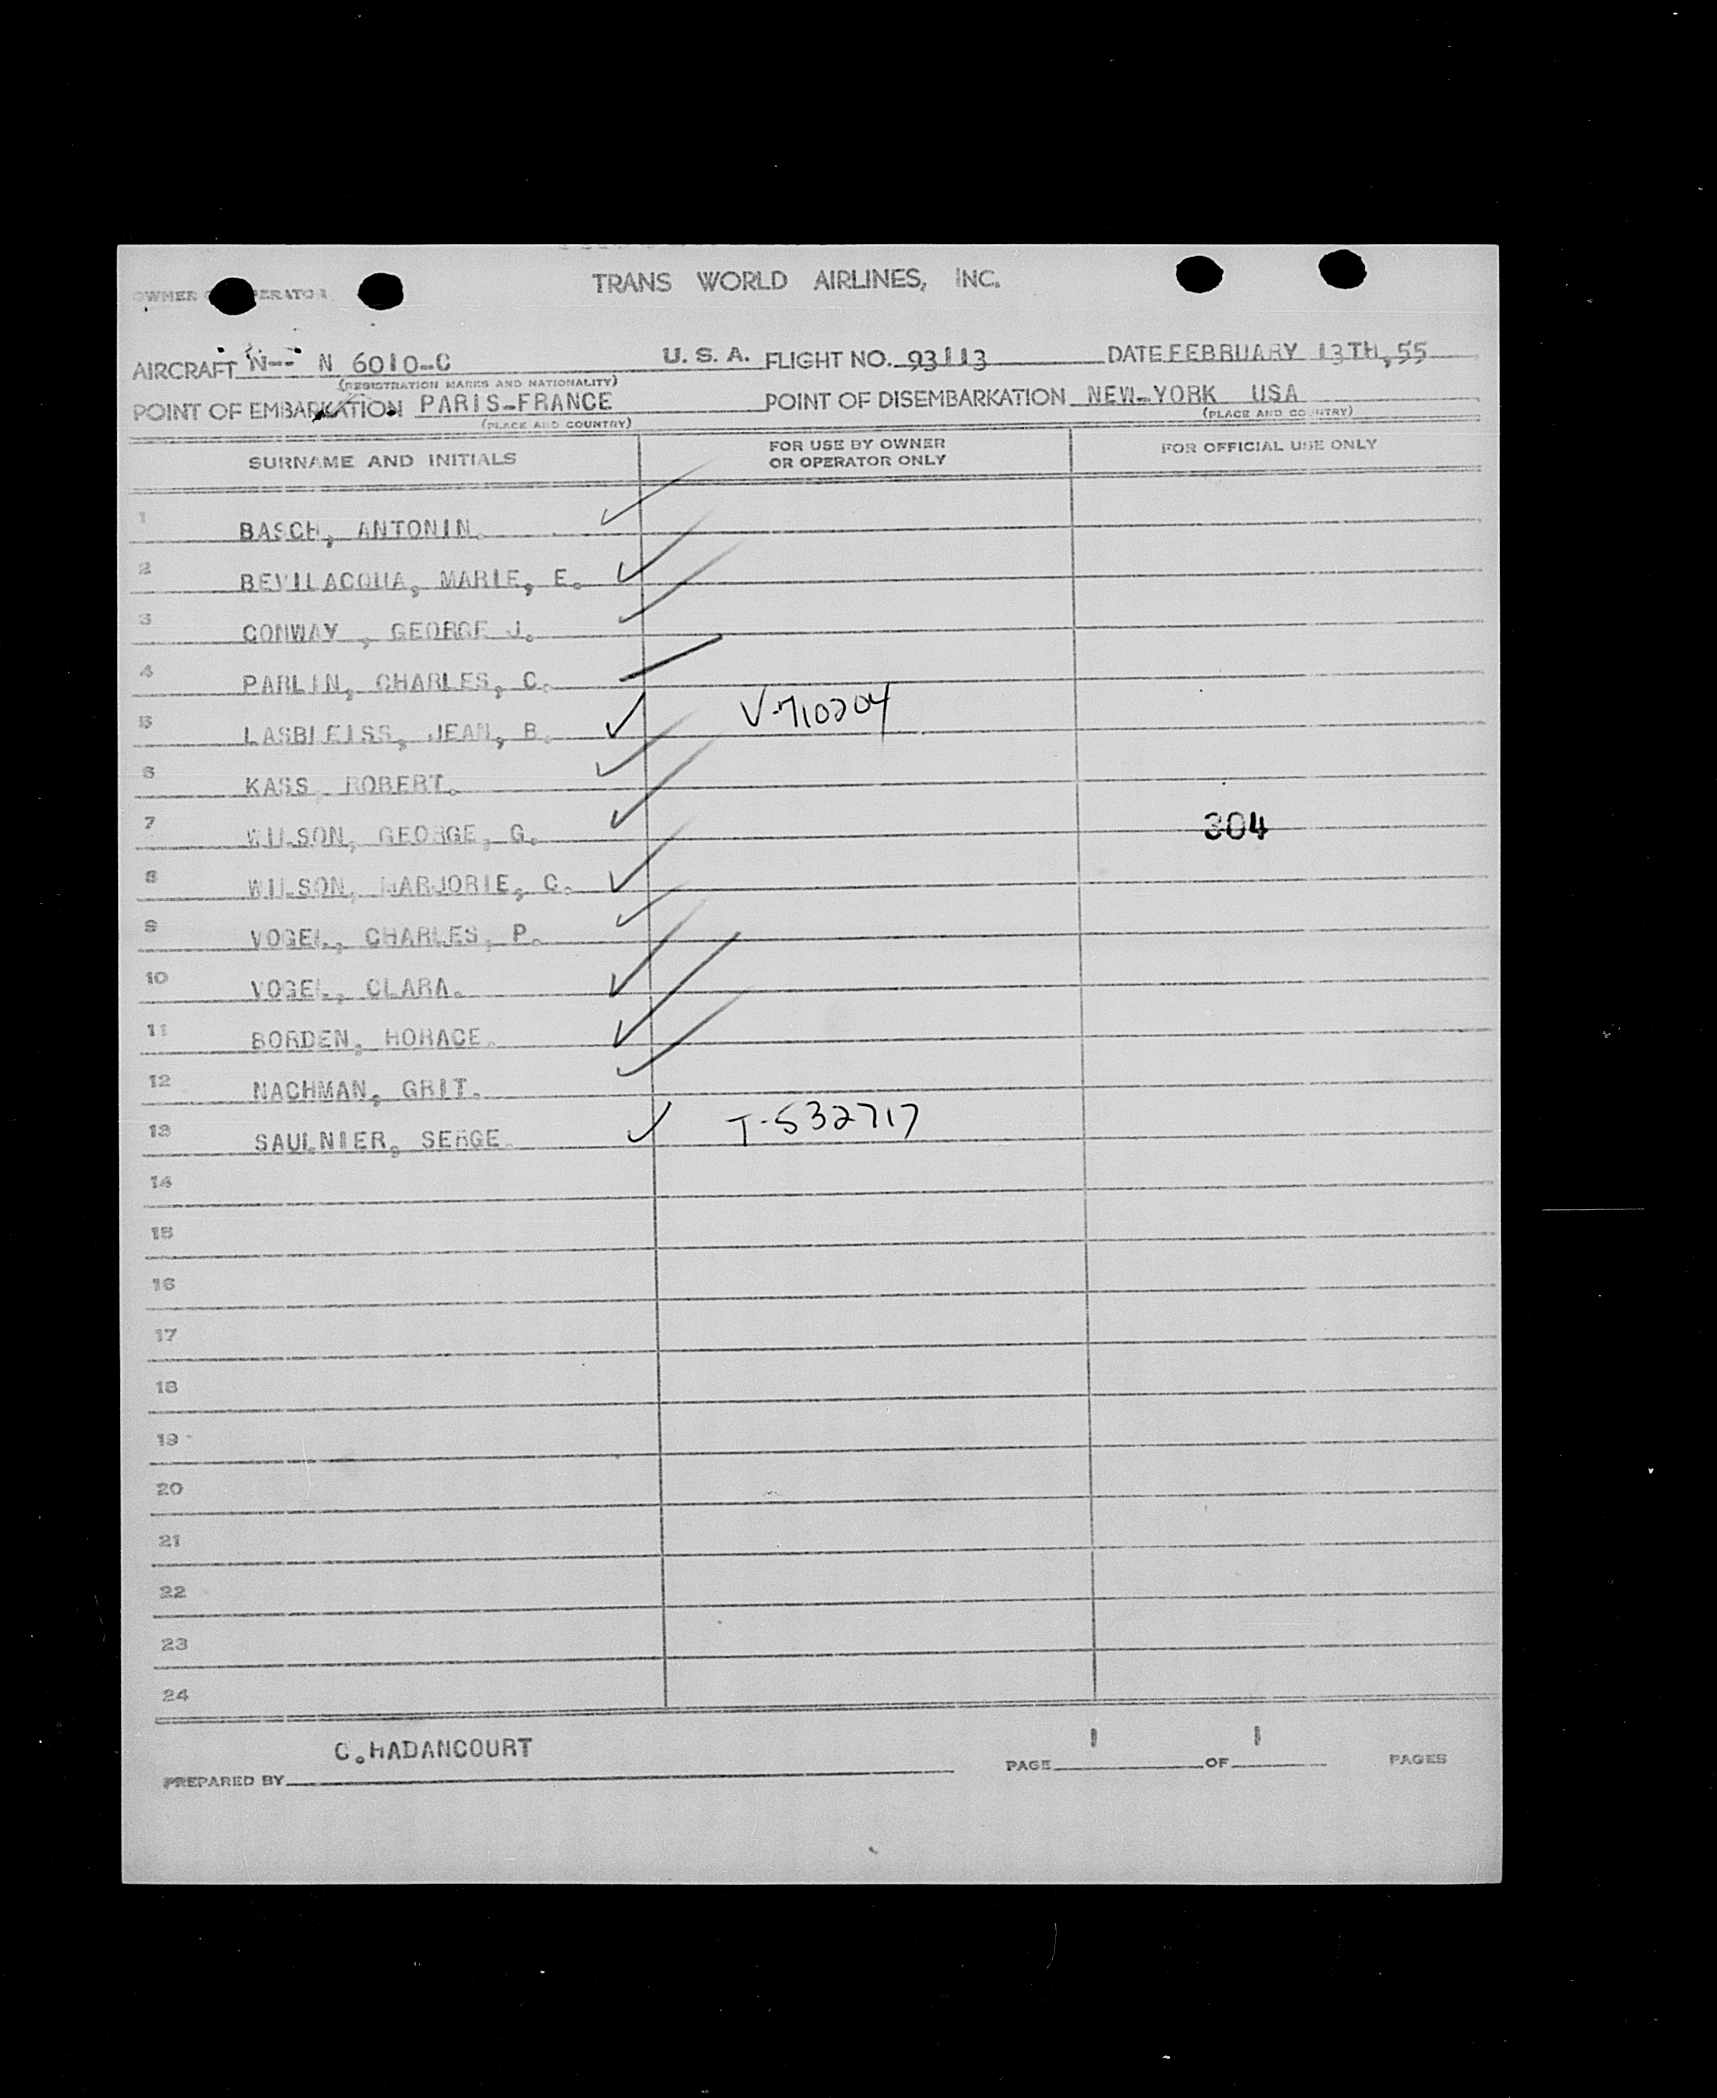 TRANS WORLD AIRLINES, INC.
OWNER OPERATOR
AIRCRAFT N-- N 6010-C U. S. A. FLIGHT NO. 93113 DATE FEBRUARY 13TH, 55
(REGISTRATION MARKS AND NATIONALITY)
POINT OF EMBARKATION PARIS-FRANCE POINT OF DISEMBARKATION NEW-YORK USA
(PLACE AND COUNTRY) (PLACE AND COUNTRY)
SURNAME AND INITIALS FOR USE BY OWNER OR OPERATOR ONLY FOR OFFICIAL USE ONLY
1 BASCH, ANTONIN.
2 BEVILACQUA, MARIE, E.
3 CONWAY , GEORGE J.
4 PARLIN, CHARLES, C.
5 LASBLEISS, JEAN, B. V-710204
6 KASS, ROBERT.
7 WILSON, GEORGE, G. 304
8 WILSON, MARJORIE, C.
9 VOGEL, CHARLES, P.
10 VOGEL, CLARA.
11 BORDEN, HORACE.
12 NACHMAN, GRIT.
13 SAULNIER, SERGE. T-532717
14
15
16
17
18
19
20
21
22
23
24
PREPARED BY C.HADANCOURT PAGE 1 OF 1 PAGES